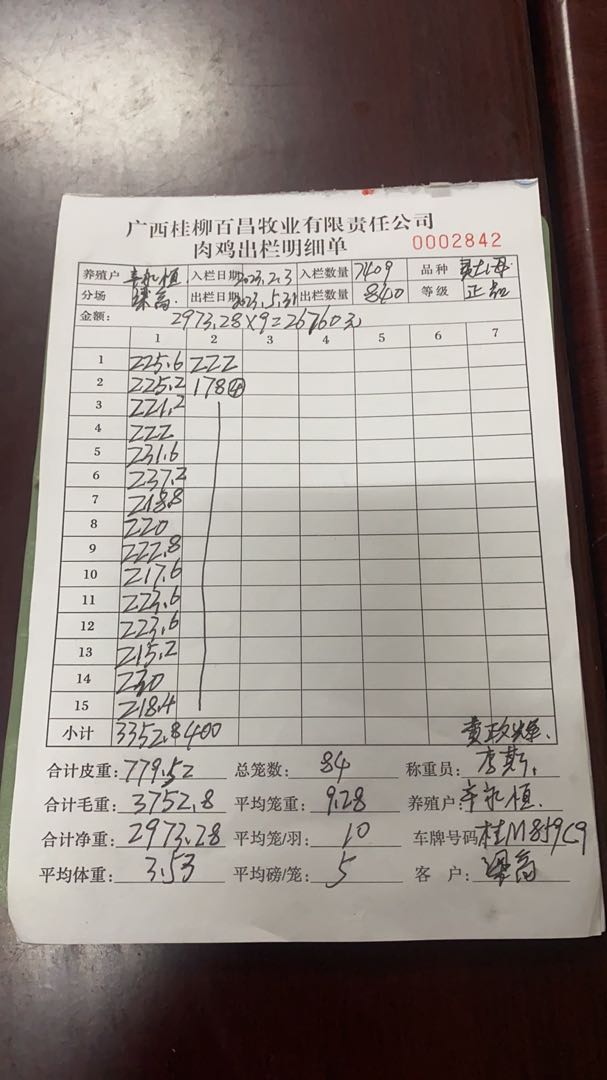 广西桂柳百昌牧业有限责任公司
肉鸡出栏明细单 0002842
养殖户 辛永恒 入栏日期 2023.2.3 入栏数量 7409 品种
分场 出栏日期 2023.5.31 出栏数量 840 等级 正品
金额: 2973.28×9=26760元
1 2 3 4 5 6 7
1 225.6 222
2 225.2 178④
3 221.2
4 222
5 231.6
6 237.2
7 218.8
8 220
9 222.8
10 217.6
11 223.6
12 223.6
13 215.2
14 230
15 218.4
小计 3352.8 400 黄政辉.
合计皮重: 779.52 总笼数: 84 称重员: 李斯.
合计毛重: 3752.8 平均笼重: 9.28 养殖户: 辛永恒.
合计净重: 2973.28 平均笼/羽: 10 车牌号码 桂M859C9
平均体重: 3.53 平均磅/笼: 5 客 户: